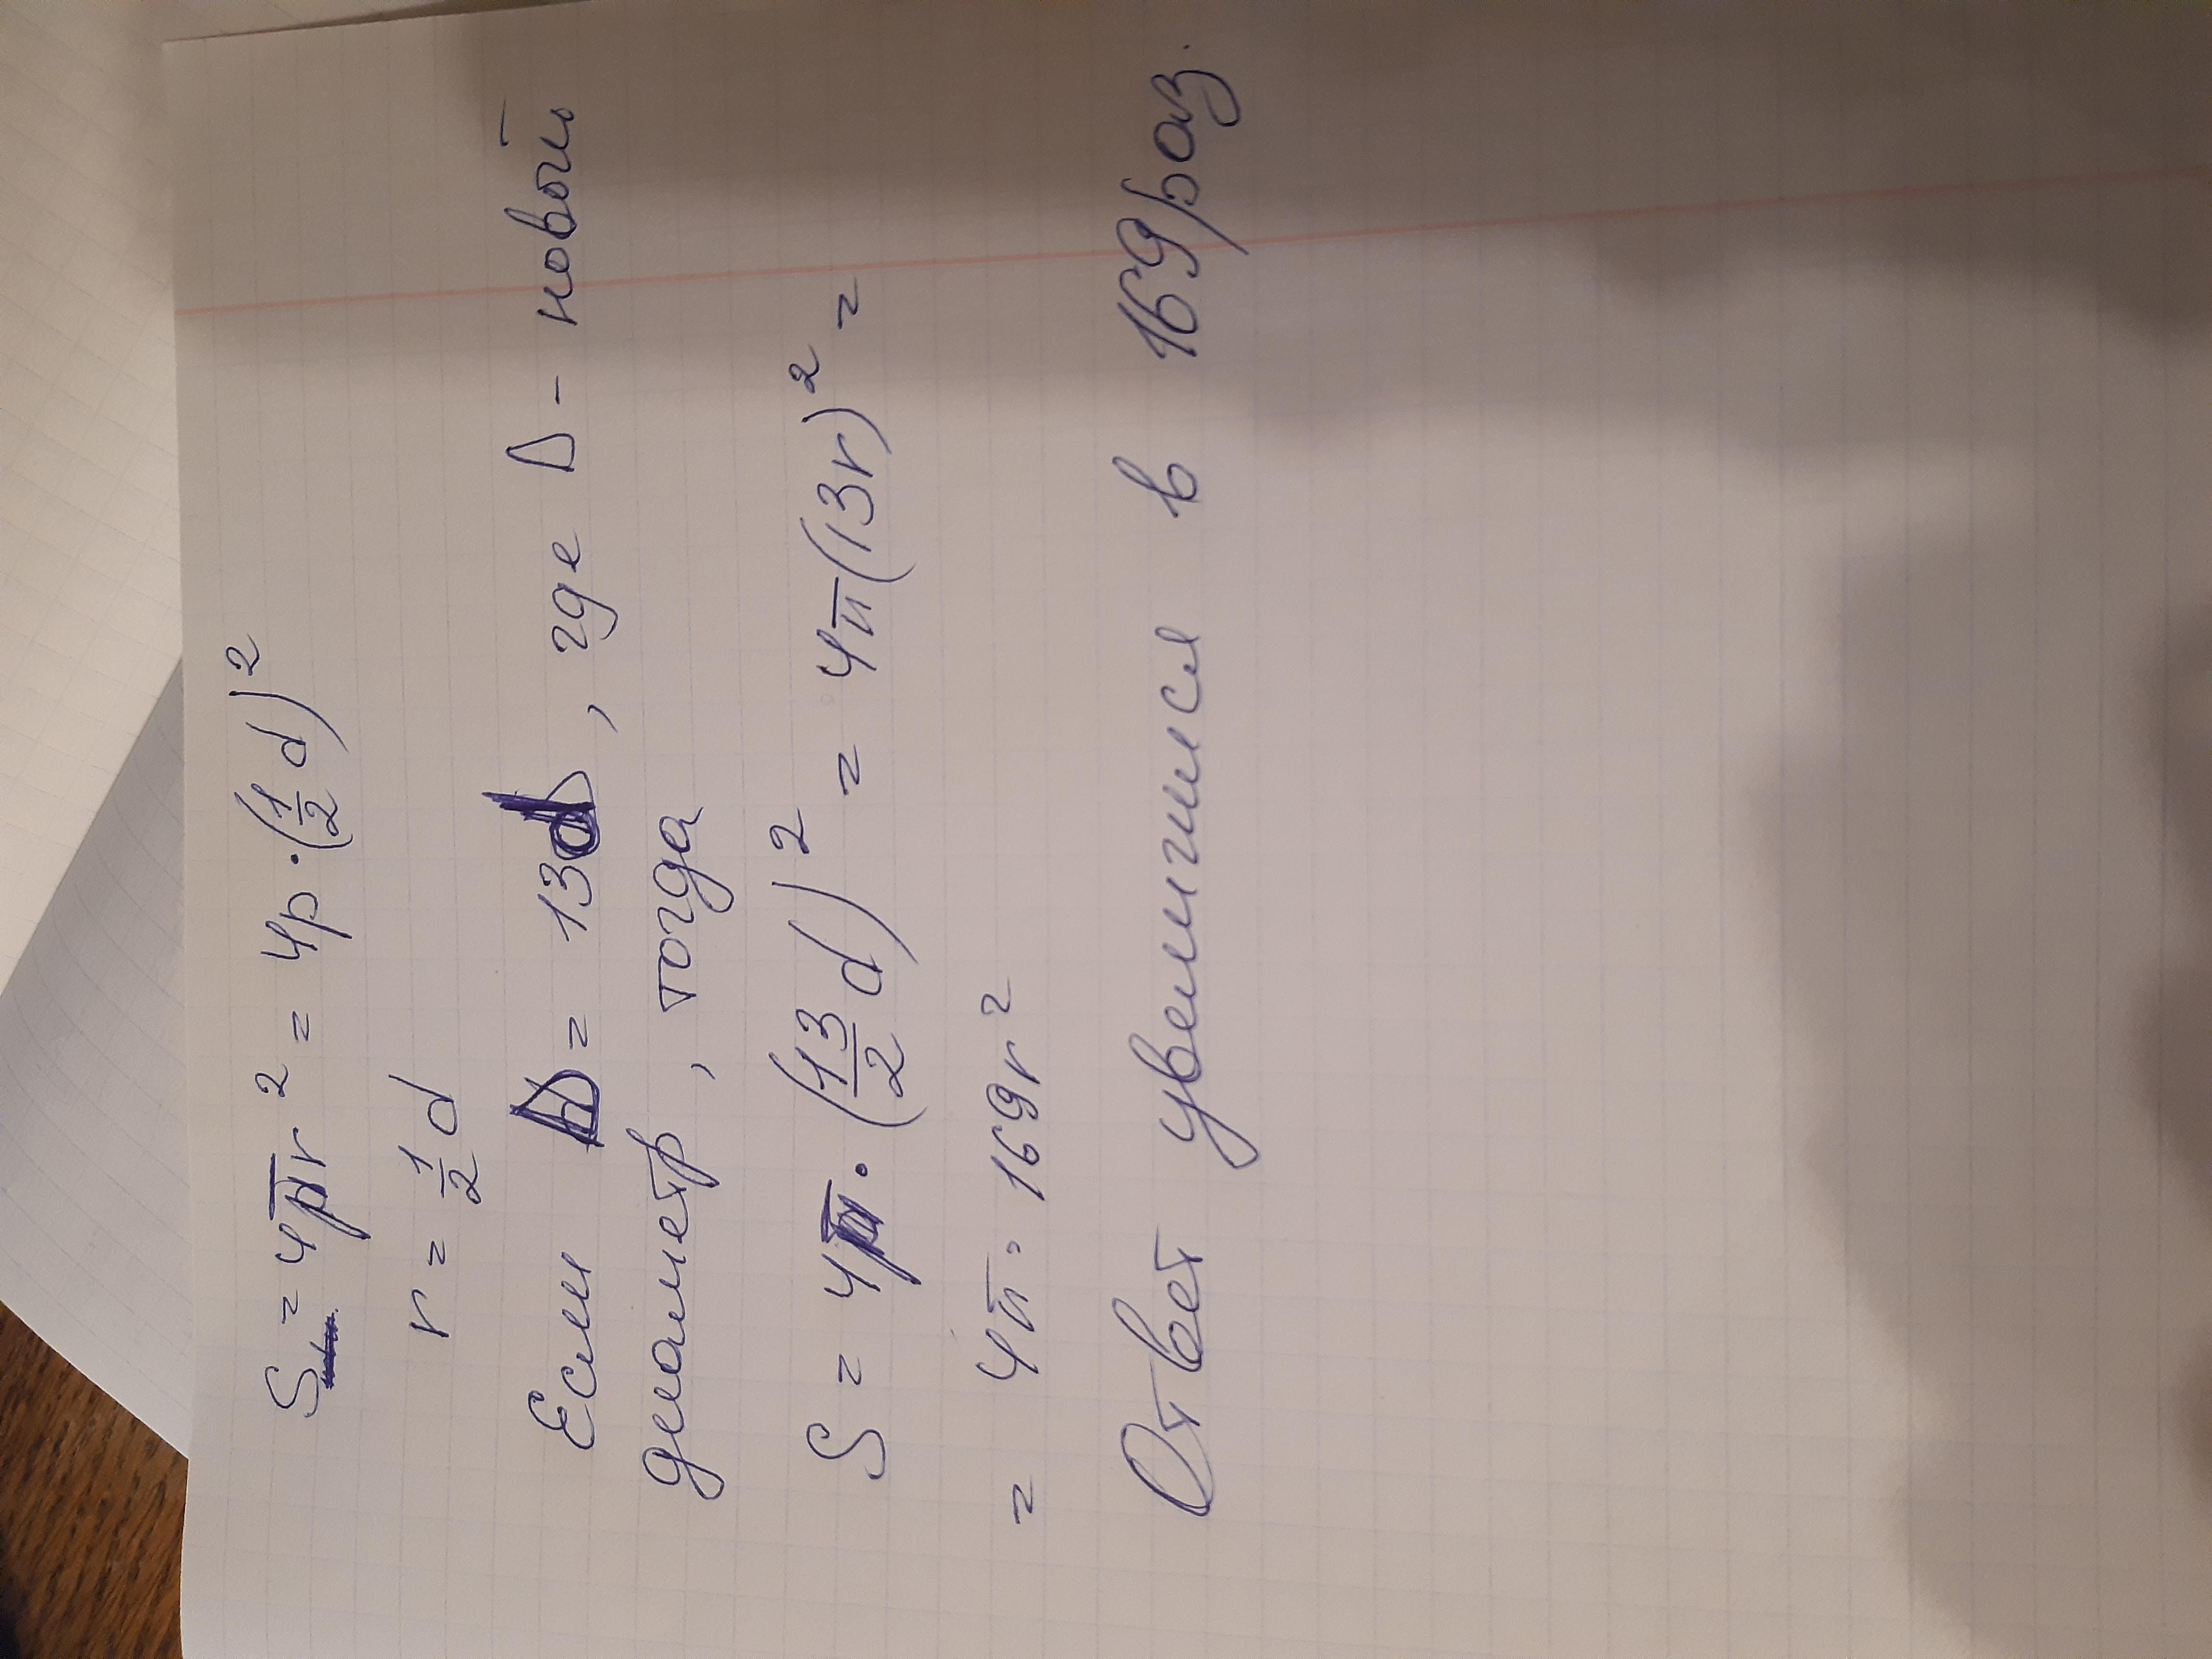 S = 4πr² = 4p·(1/2 d)²
r = 1/2 d
Если D = 13d, где D - новый
диаметр, тогда
S = 4π·(13/2 d)² = 4π(13r)² =
= 4π·169r²
Ответ увеличился в 169 раз.